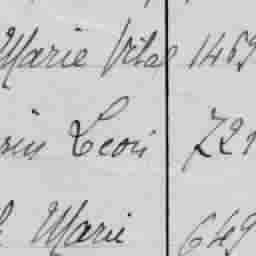 Marie Vital 1459
Leon 721
Marie 649